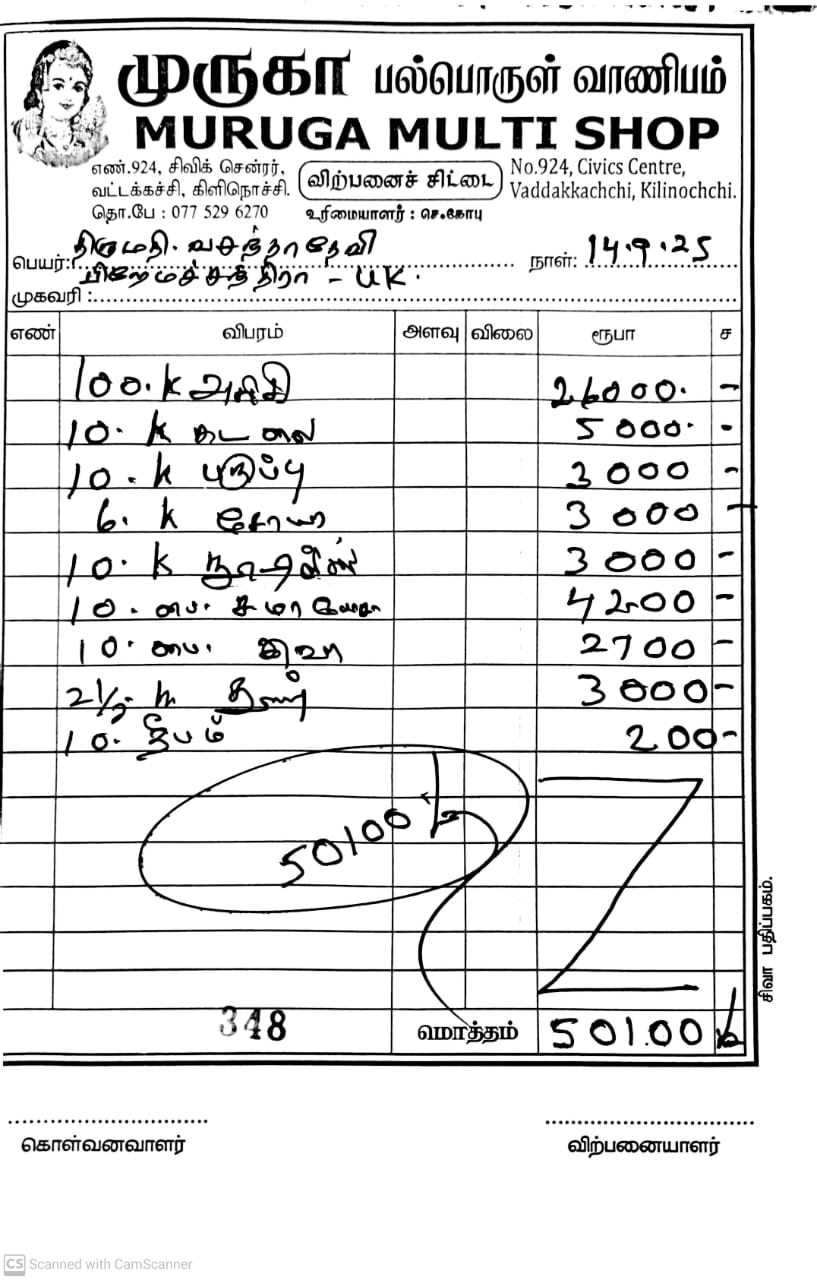 முருகா பல்பொருள் வாணிபம்
MURUGA MULTI SHOP
எண்.924, சிவிக் சென்ரர்,
வட்டக்கச்சி, கிளிநொச்சி.
தொ.பே : 077 529 6270
விற்பனைச் சிட்டை
உரிமையாளர் : செ.கோபு
No.924, Civics Centre,
Vaddakkachchi, Kilinochchi.
பெயர்: திருமதி. வசந்தாதேவி நாள்: 14.9.25
பிறேமச்சந்திரா - UK.
முகவரி :
எண் விபரம் அளவு விலை ரூபா ச
100. k அரிசி 26000. -
10. k கடலை 5000. -
10. k பருப்பு 3000 -
6. k சோயா 3000 -
10. k 3000 -
10. பை. 4200 -
10. பை. 2700 -
2½ 3000 -
10. தீபம் 200 -
50100
348 மொத்தம் 50100
கொள்வனவாளர் விற்பனையாளர்
சிவா பதிப்பகம்.
CS Scanned with CamScanner